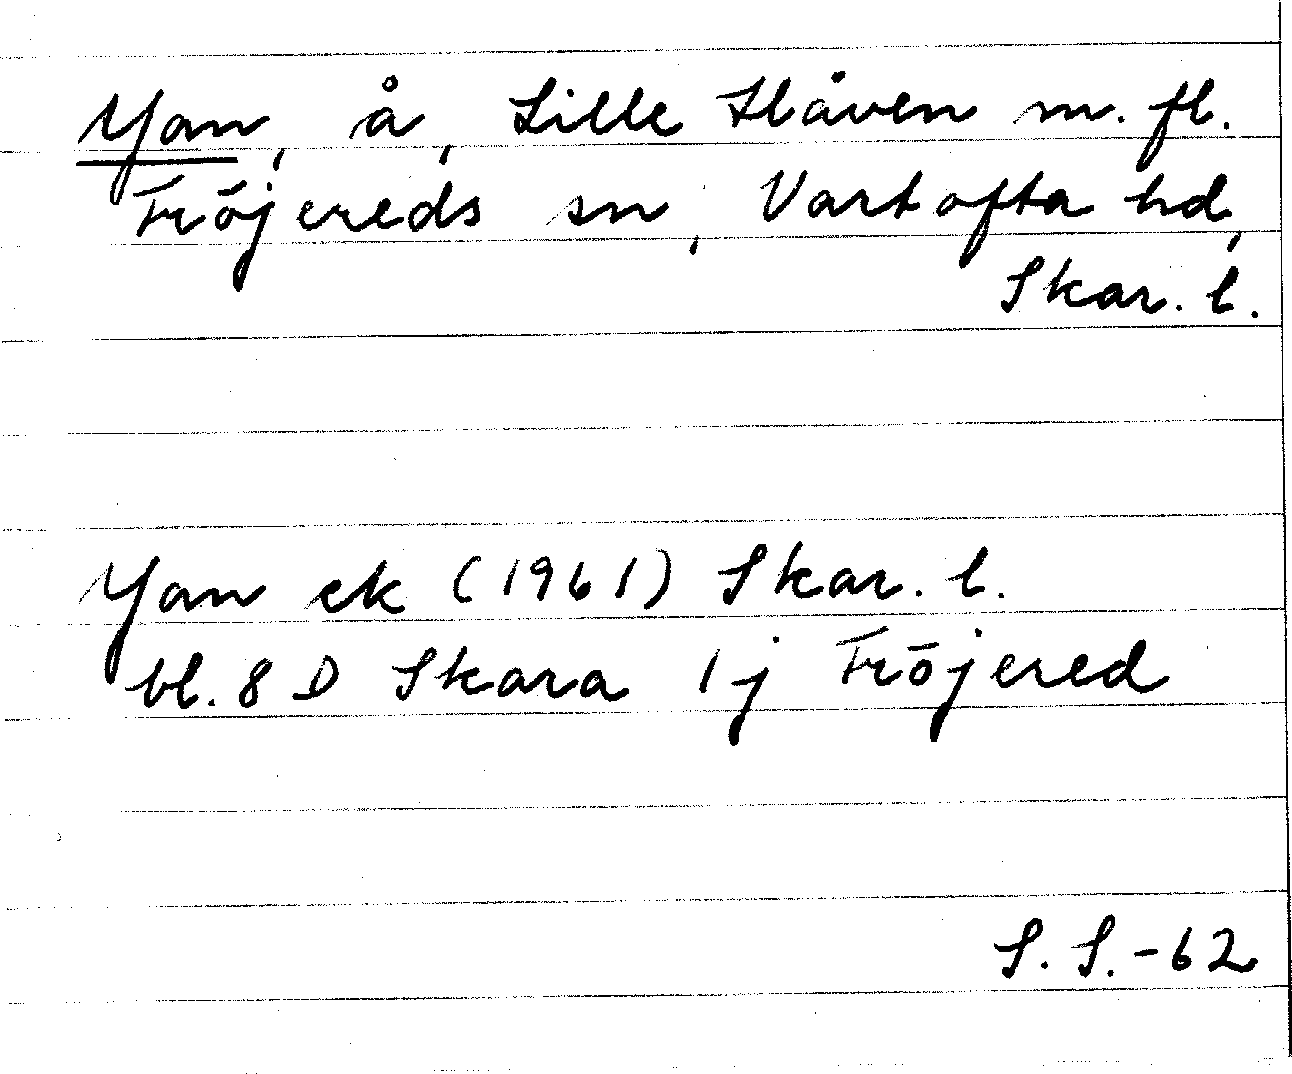 Yan, å, Lille Håven m. fl.
Fröjereds sn, Vartofta hd,
Skar. l.
Yan ek (1961) Skar. l.
bl. 8 D Skara 1 j Fröjered
S. S. -62